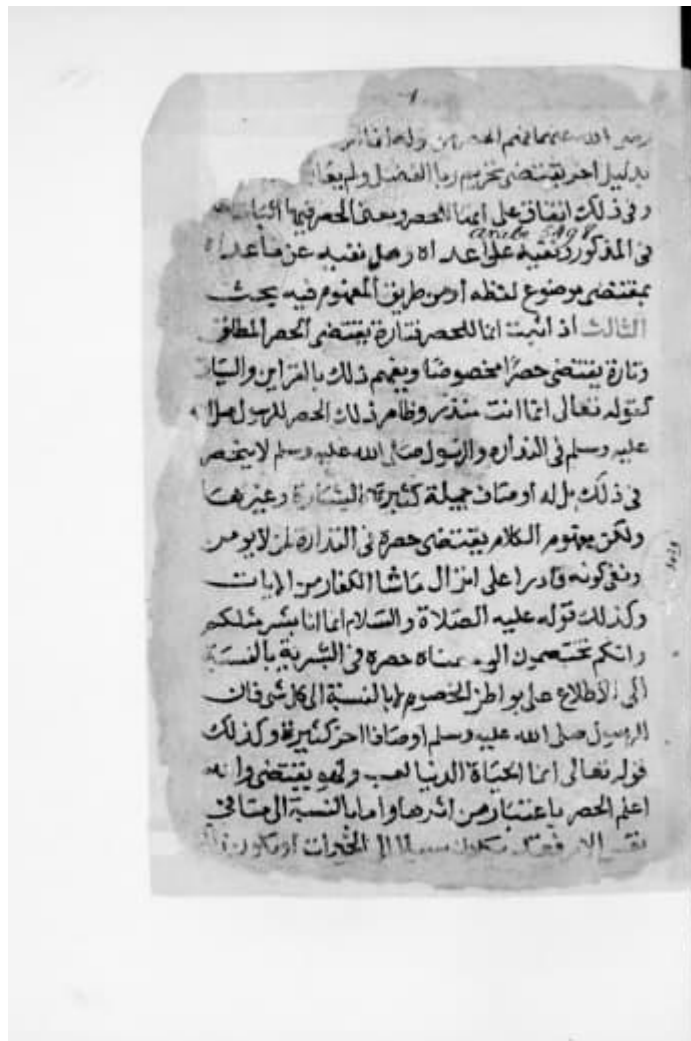 رضي الله عنهما فهم الحصر من
بدليل اخر يقتضي تحريم ربا الفضل ولم
وفي ذلك اتفاق على انها للحصر ومعنى الحصر فيها اثبات
arabe 5498
في المذكور ونفيه عما عداه وهل نفيه عن ما عداه
بمقتضى موضوع لفظه او من طريق المفهوم فيه بحث
الثالث اذ اثبت انما للحصر فتارة يقتضي الحصر المطلق
وتارة يقتضي حصرا مخصوصا ويفهم ذلك بالقراين والسياق
كقوله تعالى انما انت منذر وظاهر ذلك الحصر للرسول صلى الله
عليه وسلم في النذاره والرسول صلى الله عليه وسلم لا ينحصر
في ذلك بل له اوصاف جميلة كثيرة البشارة وغيرها
ولكن مفهوم الكلام يقتضي حصره في النذارة لمن لا يومن
ونفي كونه قادرا على انزال ماشا الكفار من الايات
وكذلك قوله عليه الصلاة والسلام انما انا بشر مثلكم
وانكم تختصمون الي معناه حصره في البشرية بالنسبة
الى الاطلاع على بواطن الخصوم لا بالنسبة الى كل شي فان
للرسول صلى الله عليه وسلم اوصافا اخر كثيرة وكذلك
قوله تعالى انما الحياة الدنيا لعب ولهو يقتضي والله
اعلم الحصر باعتبار من اثرها واما بالنسبة الى ما في
نفس الامر فقد تكون سبيلا الى الخيرات او يكون